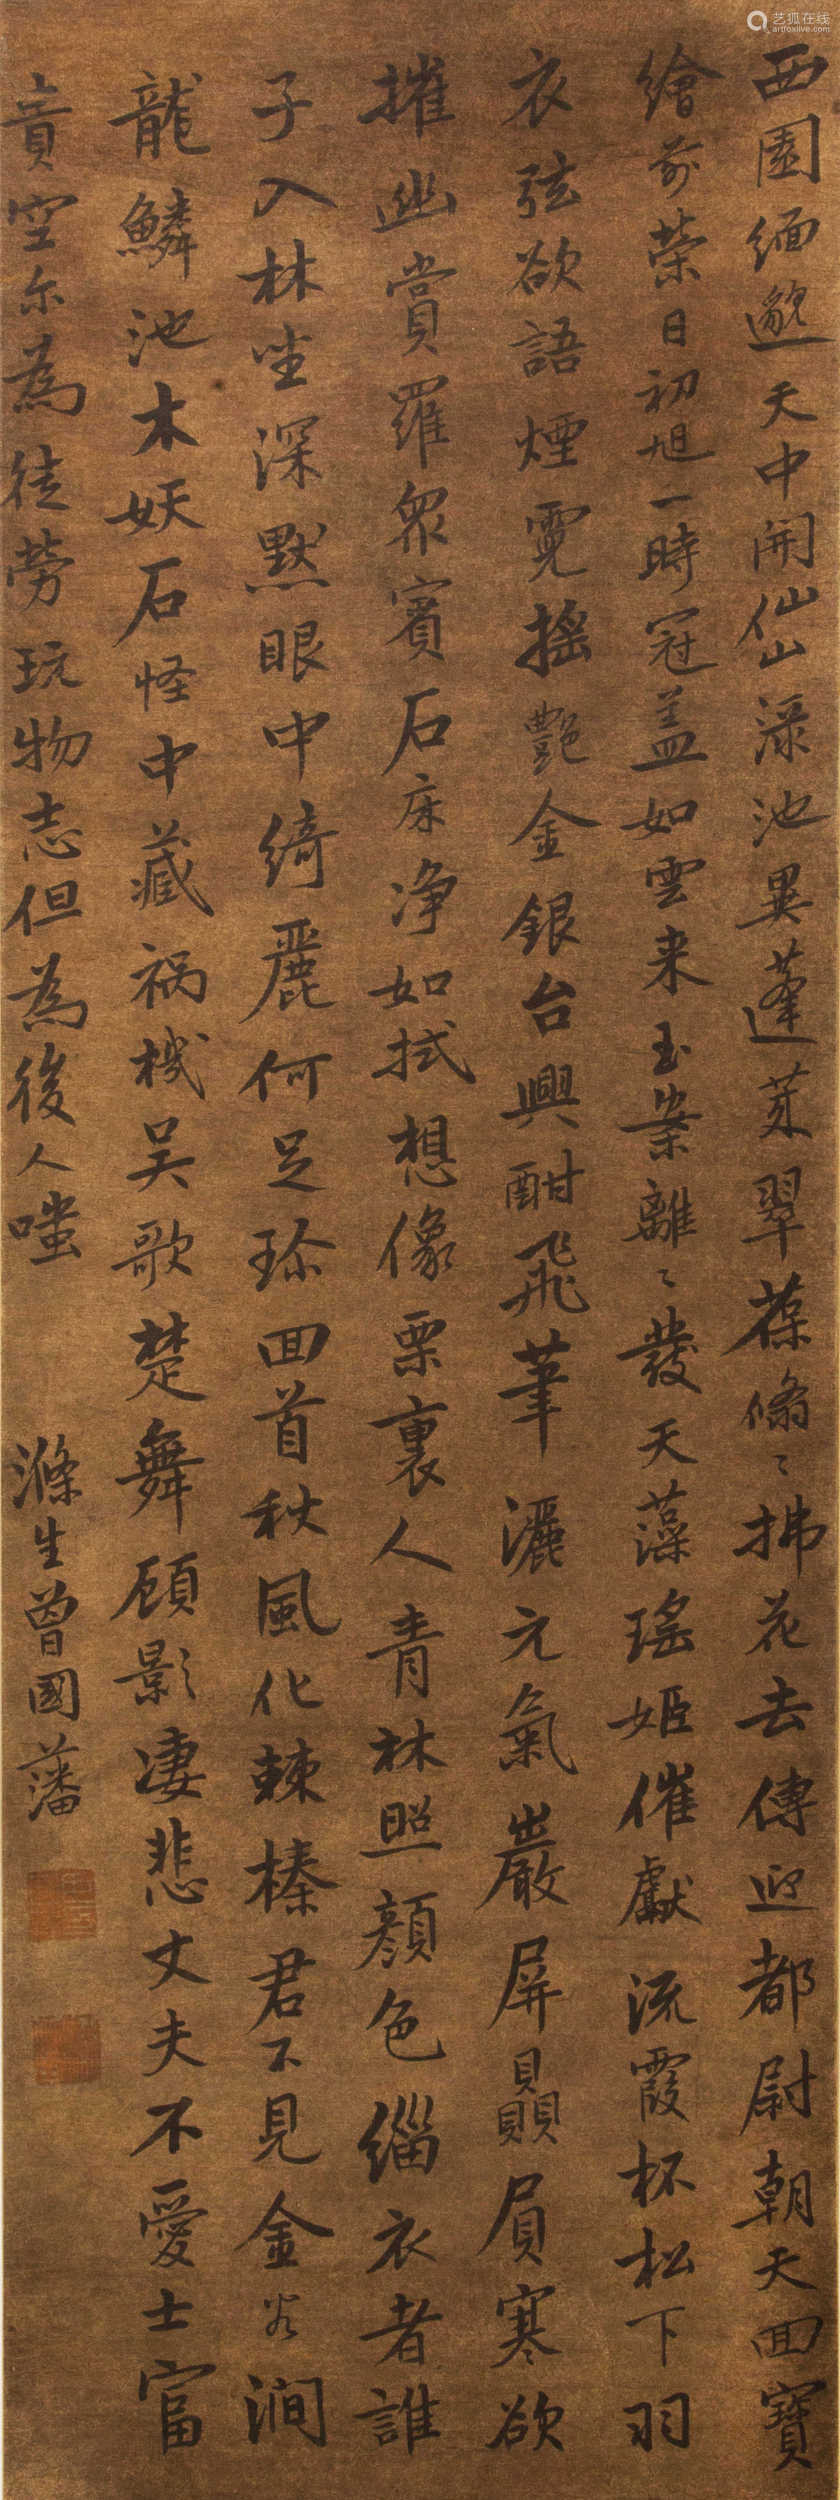 西園緬邈天中開仙山渌池異蓬莱翠葆翛々拂花去傳迎都尉朝天回寶
繪前榮日初旭一時冠盖如雲来玉案離々發天藻瑤姬催獻流霞杯松下羽
衣弦欲語煙霓搖艷金銀台興酣飛筆灑元氣巖屏贔屓寒欲
摧幽賞羅衆賓石床净如拭想像栗裏人青林照顔色緇衣者誰
子入林坐深黙眼中綺麗何足珎回首秋風化棘榛君不見金谷澗
龍鱗池木妖石怪中藏禍機吴歌楚舞顧影凄悲丈夫不愛士富
貴空尔為徒勞玩物志但為後人嗤
滌生曾國藩
艺狐在线
artfoxlive.com